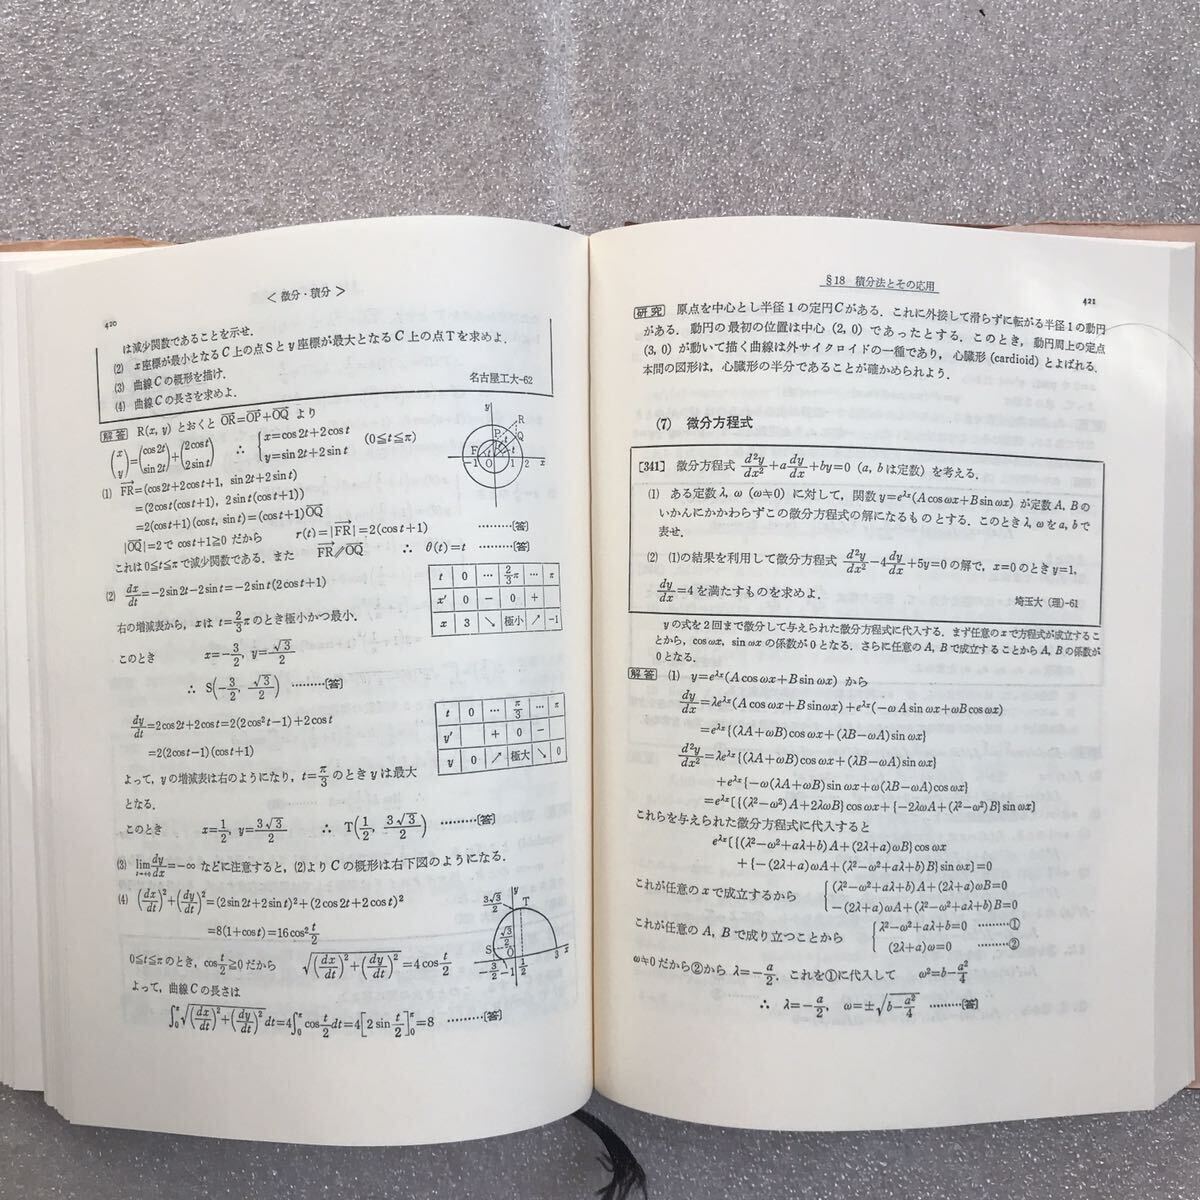 420
< 微分・積分 >
は減少関数であることを示せ.
(2) x座標が最小となるC上の点Sとy座標が最大となるC上の点Tを求めよ.
(3) 曲線Cの概形を描け.
(4) 曲線Cの長さを求めよ. 名古屋工大-62
解答 R(x, y) とおくと OR=OP+OQ より
(x y)=(cos2t sin2t)+(2cost 2sint) ∴ {x=cos2t+2cost y=sin2t+2sint (0≦t≦π)
(1) FR=(cos2t+2cost+1, sin2t+2sint)
=(2cost(cost+1), 2sint(cost+1))
=2(cost+1)(cost, sint)=(cost+1)OQ
|OQ|=2で cost+1≧0 だから r(t)=|FR|=2(cost+1) ………〔答〕
これは0≦t≦πで減少関数である. また FR∥OQ ∴ θ(t)=t ………〔答〕
(2) dx/dt=-2sin2t-2sint=-2sint(2cost+1)
右の増減表から, xは t=2/3πのとき極小かつ最小.
このとき x=-3/2, y=√3/2
∴ S(-3/2, √3/2) ………〔答〕
t 0 … 2/3π … π
x′ 0 − 0 +
x 3 ↘ 極小 ↗ -1
dy/dt=2cos2t+2cost=2(2cos²t-1)+2cost
=2(2cost-1)(cost+1)
よって, yの増減表は右のようになり, t=π/3 のとき y は最大
となる.
t 0 … π/3 … π
y′ + 0 −
y 0 ↗ 極大 ↘ 0
このとき x=1/2, y=3√3/2 ∴ T(1/2, 3√3/2) ………〔答〕
(3) lim t→+0 dy/dx=-∞ などに注意すると, (2)よりCの概形は右下図のようになる.
(4) (dx/dt)²+(dy/dt)²=(2sin2t+2sint)²+(2cos2t+2cost)²
=8(1+cost)=16cos²t/2
0≦t≦πのとき, cos t/2≧0だから √(dx/dt)²+(dy/dt)²=4cos t/2
よって, 曲線Cの長さは
∫₀^π√(dx/dt)²+(dy/dt)² dt=4∫₀^π cos t/2 dt=4[2sin t/2]₀^π=8 ………〔答〕
y
R
P
Q
F
t
-1 O 1 2 x
y
3√3/2
T
√3/2
S
O
-3/2 -1 1/2 3 x
§18 積分法とその応用
421
研究 原点を中心とし半径1の定円Cがある. これに外接して滑らずに転がる半径1の動円
がある. 動円の最初の位置は中心 (2, 0) であったとする. このとき, 動円周上の定点
(3, 0) が動いて描く曲線は外サイクロイドの一種であり, 心臓形 (cardioid) とよばれる.
本問の図形は, 心臓形の半分であることが確かめられよう.
(7) 微分方程式
[341] 微分方程式 d²y/dx²+a dy/dx+by=0 (a, bは定数) を考える.
(1) ある定数λ, ω (ω≠0) に対して, 関数 y=e^λx(A cosωx+B sinωx) が定数A, Bの
いかんにかかわらずこの微分方程式の解になるものとする. このときλ, ωをa, bで
表せ.
(2) (1)の結果を利用して微分方程式 d²y/dx²-4dy/dx+5y=0 の解で, x=0 のとき y=1,
dy/dx=4 を満たすものを求めよ. 埼玉大 (理)-61
yの式を2回まで微分して与えられた微分方程式に代入する. まず任意のxで方程式が成立するこ
とから, cosωx, sinωx の係数が0となる. さらに任意のA, Bで成立することからA, Bの係数が
0となる.
解答 (1) y=e^λx(A cosωx+B sinωx) から
dy/dx=λe^λx(A cosωx+B sinωx)+e^λx(-ωA sinωx+ωB cosωx)
=e^λx{(λA+ωB)cosωx+(λB-ωA)sinωx}
d²y/dx²=λe^λx{(λA+ωB)cosωx+(λB-ωA)sinωx}
+e^λx{-ω(λA+ωB)sinωx+ω(λB-ωA)cosωx}
=e^λx[{(λ²-ω²)A+2λωB}cosωx+{-2λωA+(λ²-ω²)B}sinωx]
これらを与えられた微分方程式に代入すると
e^λx[{(λ²-ω²+aλ+b)A+(2λ+a)ωB}cosωx
+{-(2λ+a)ωA+(λ²-ω²+aλ+b)B}sinωx]=0
これが任意のxで成立するから {(λ²-ω²+aλ+b)A+(2λ+a)ωB=0
-(2λ+a)ωA+(λ²-ω²+aλ+b)B=0
これが任意のA, Bで成り立つことから {λ²-ω²+aλ+b=0 ………①
(2λ+a)ω=0 ………②
ω≠0だから②から λ=-a/2. これを①に代入して ω²=b-a²/4
∴ λ=-a/2, ω=±√b-a²/4 ………〔答〕